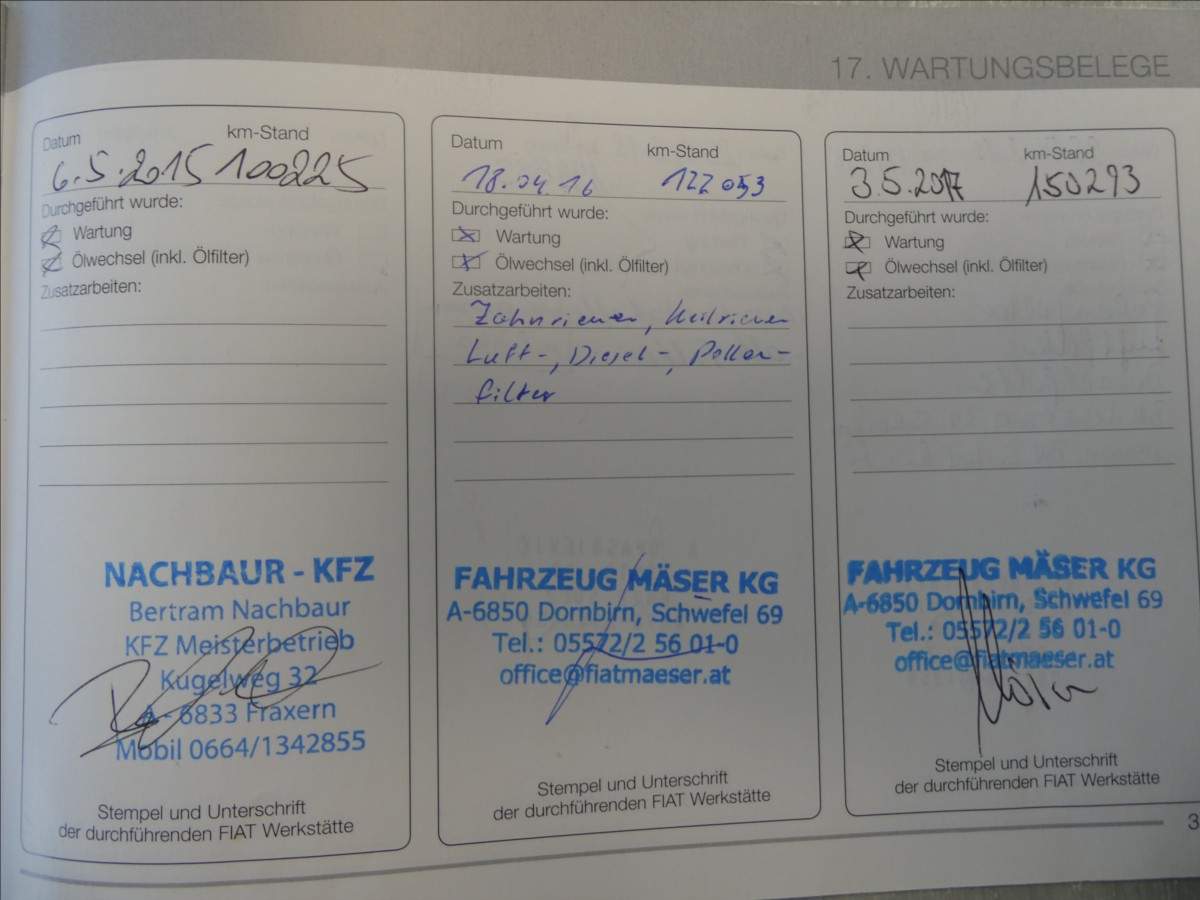 17. WARTUNGSBELEGE
Datum km-Stand
6.5.2015 100225
Durchgeführt wurde:
Wartung
Ölwechsel (inkl. Ölfilter)
Zusatzarbeiten:
NACHBAUR - KFZ
Bertram Nachbaur
KFZ Meisterbetrieb
Kugelweg 32
A - 6833 Fraxern
Mobil 0664/1342855
Stempel und Unterschrift
der durchführenden FIAT Werkstätte
Datum km-Stand
18.04.16 122053
Durchgeführt wurde:
Wartung
Ölwechsel (inkl. Ölfilter)
Zusatzarbeiten:
Zahnriemen, Keilriemen
Luft-, Diesel-, Pollen-
filter
FAHRZEUG MÄSER KG
A-6850 Dornbirn, Schwefel 69
Tel.: 05572/2 56 01-0
office@fiatmaeser.at
Stempel und Unterschrift
der durchführenden FIAT Werkstätte
Datum km-Stand
3.5.2017 150293
Durchgeführt wurde:
Wartung
Ölwechsel (inkl. Ölfilter)
Zusatzarbeiten:
FAHRZEUG MÄSER KG
A-6850 Dornbirn, Schwefel 69
Tel.: 05572/2 56 01-0
office@fiatmaeser.at
Stempel und Unterschrift
der durchführenden FIAT Werkstätte
3